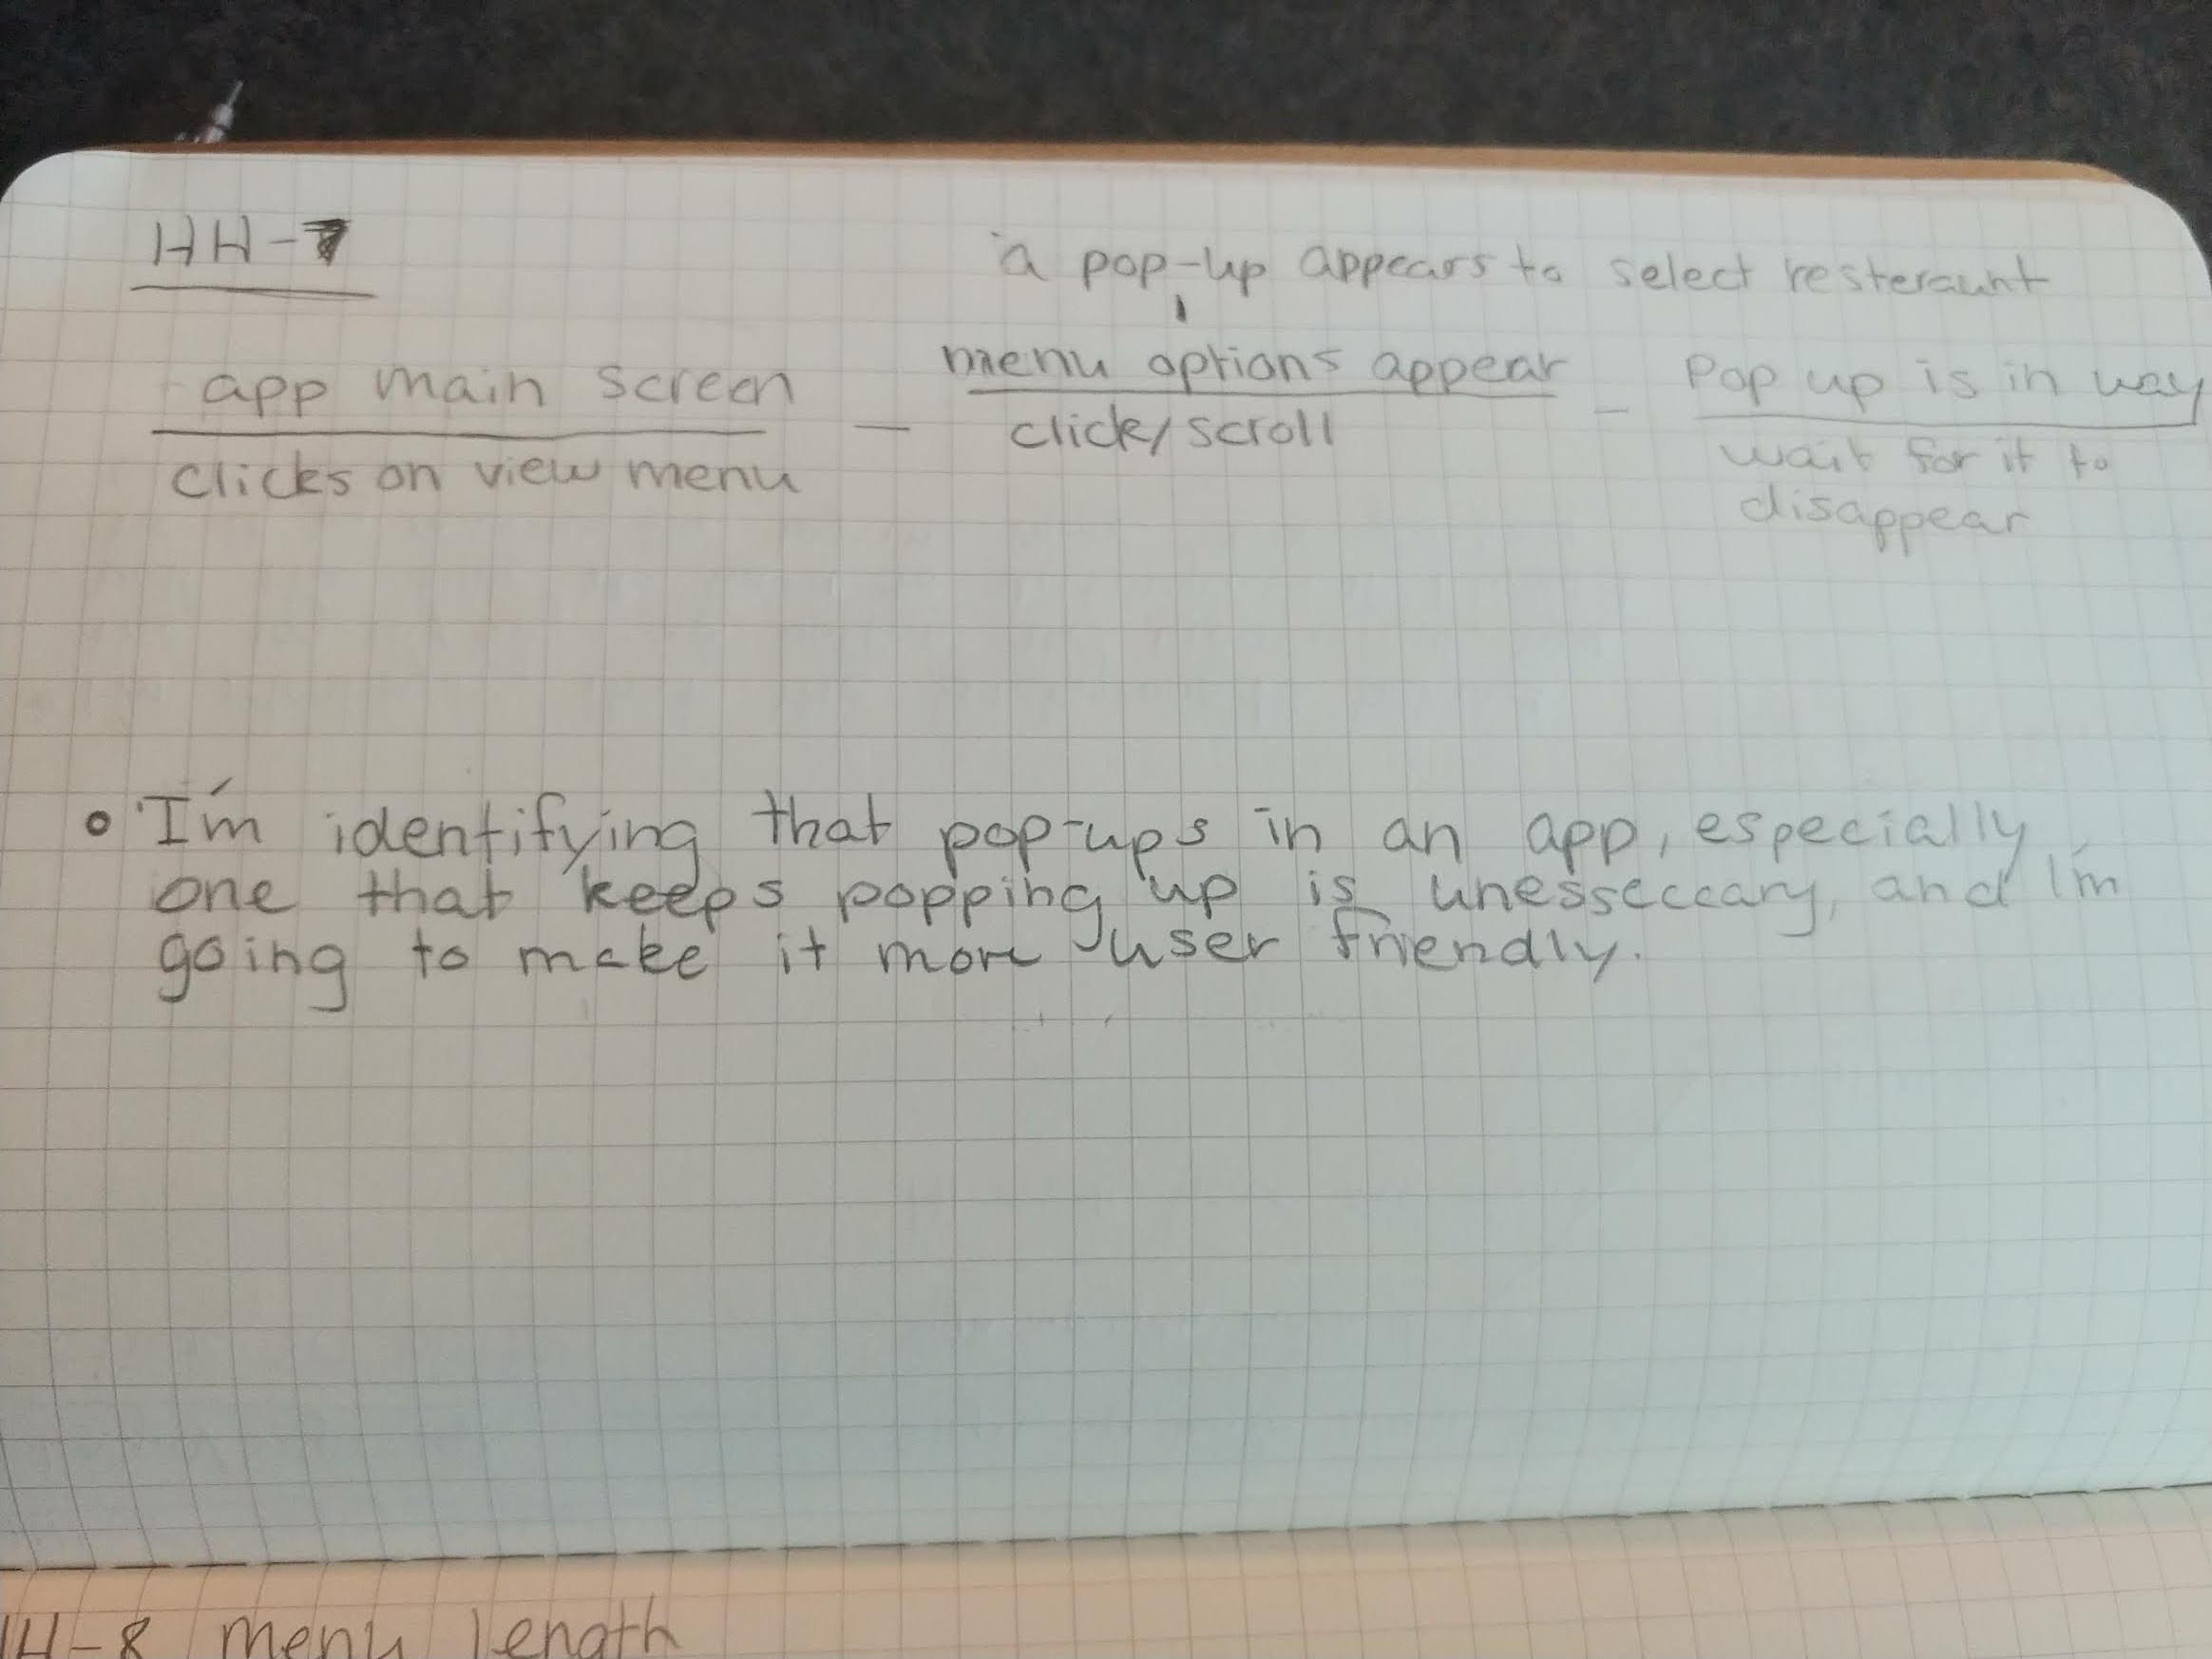 HH-7
a pop-up appears to select resteraunt
app main screen
clicks on view menu
—
menu options appear
click/scroll
–
Pop up is in way
wait for it to
disappear
• I'm identifying that pop-ups in an app, especially
one that keeps popping up is unesseccary, and I'm
going to make it more user friendly.
HH-8 menu length